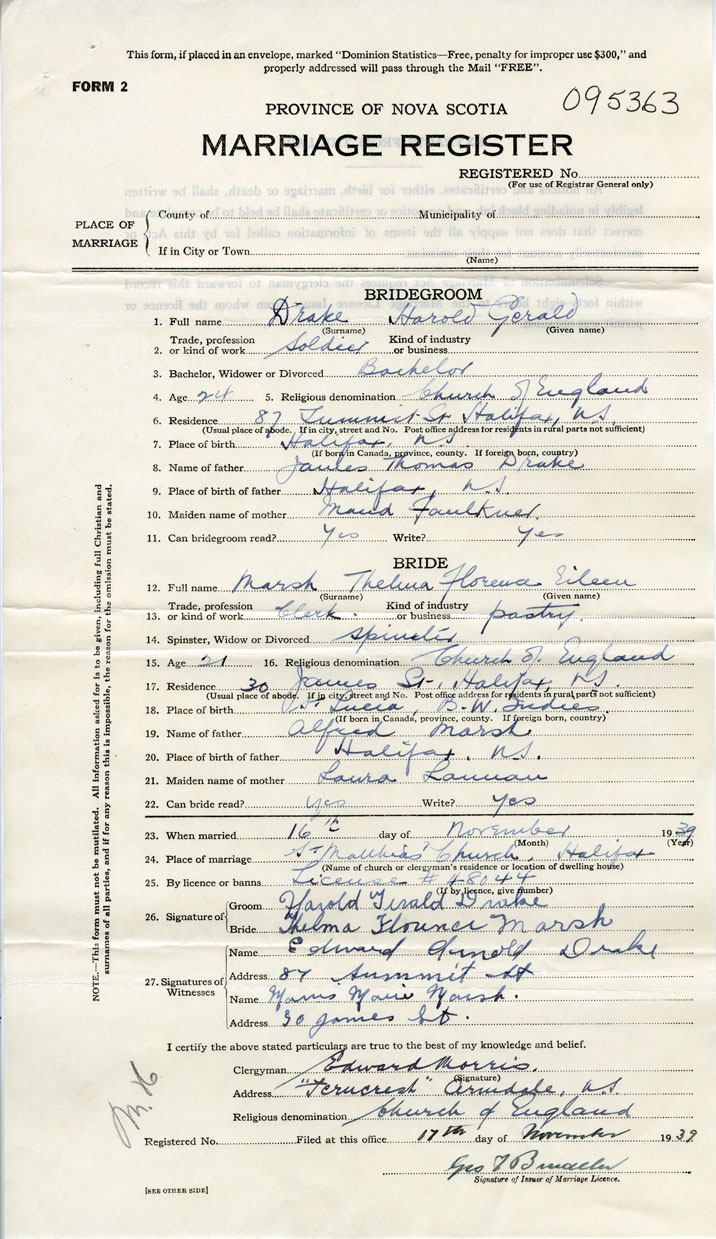 This form, if placed in an envelope, marked "Dominion Statistics—Free, penalty for improper use $300," and
properly addressed will pass through the Mail "FREE".
FORM 2
095363
PROVINCE OF NOVA SCOTIA
MARRIAGE REGISTER
REGISTERED No.
(For use of Registrar General only)
PLACE OF MARRIAGE
County of Municipality of
If in City or Town
(Name)
BRIDEGROOM
1. Full name Drake Harold Gerald
(Surname) (Given name)
2. Trade, profession or kind of work Soldier Kind of industry or business
3. Bachelor, Widower or Divorced Bachelor
4. Age 24 5. Religious denomination Church of England
6. Residence 87 Summit St Halifax, N.S.
(Usual place of abode. If in city, street and No. Post office address for residents in rural parts not sufficient)
7. Place of birth Halifax, N.S.
(If born in Canada, province, county. If foreign born, country)
8. Name of father James Thomas Drake
9. Place of birth of father Halifax, N.S.
10. Maiden name of mother Maud Faulkner
11. Can bridegroom read? Yes Write? Yes
BRIDE
12. Full name Marsh Thelma Florence Eileen
(Surname) (Given name)
13. Trade, profession or kind of work Clerk Kind of industry or business pastry
14. Spinster, Widow or Divorced Spinster
15. Age 21 16. Religious denomination Church of England
17. Residence 30 James St., Halifax, N.S.
(Usual place of abode. If in city, street and No. Post office address for residents in rural parts not sufficient)
18. Place of birth St. Lucia, B.W. Indies
(If born in Canada, province, county. If foreign born, country)
19. Name of father Alfred Marsh
20. Place of birth of father Halifax, N.S.
21. Maiden name of mother Laura
22. Can bride read? Yes Write? Yes
23. When married 16th day of November 1939
(Month) (Year)
24. Place of marriage St Matthias' Church, Halifax
(Name of church or clergyman's residence or location of dwelling house)
25. By licence or banns License # 48044
(If by licence, give number)
26. Signature of
Groom Harold Gerald Drake
Bride Thelma Florence Marsh
27. Signatures of Witnesses
Name Edward Arnold Drake
Address 87 Summit St
Name Marie Marsh.
Address 30 James St.
I certify the above stated particulars are true to the best of my knowledge and belief.
Clergyman Edward Morris.
(Signature)
Address "Ferncrest" Armdale, N.S.
Religious denomination Church of England
Registered No. Filed at this office 17th day of November 1939
Geo
Signature of Issuer of Marriage Licence.
[SEE OTHER SIDE]
NOTE.—This form must not be mutilated. All Information asked for is to be given, including full Christian and
surnames of all parties, and if for any reason this is impossible, the reason for the omission must be stated.